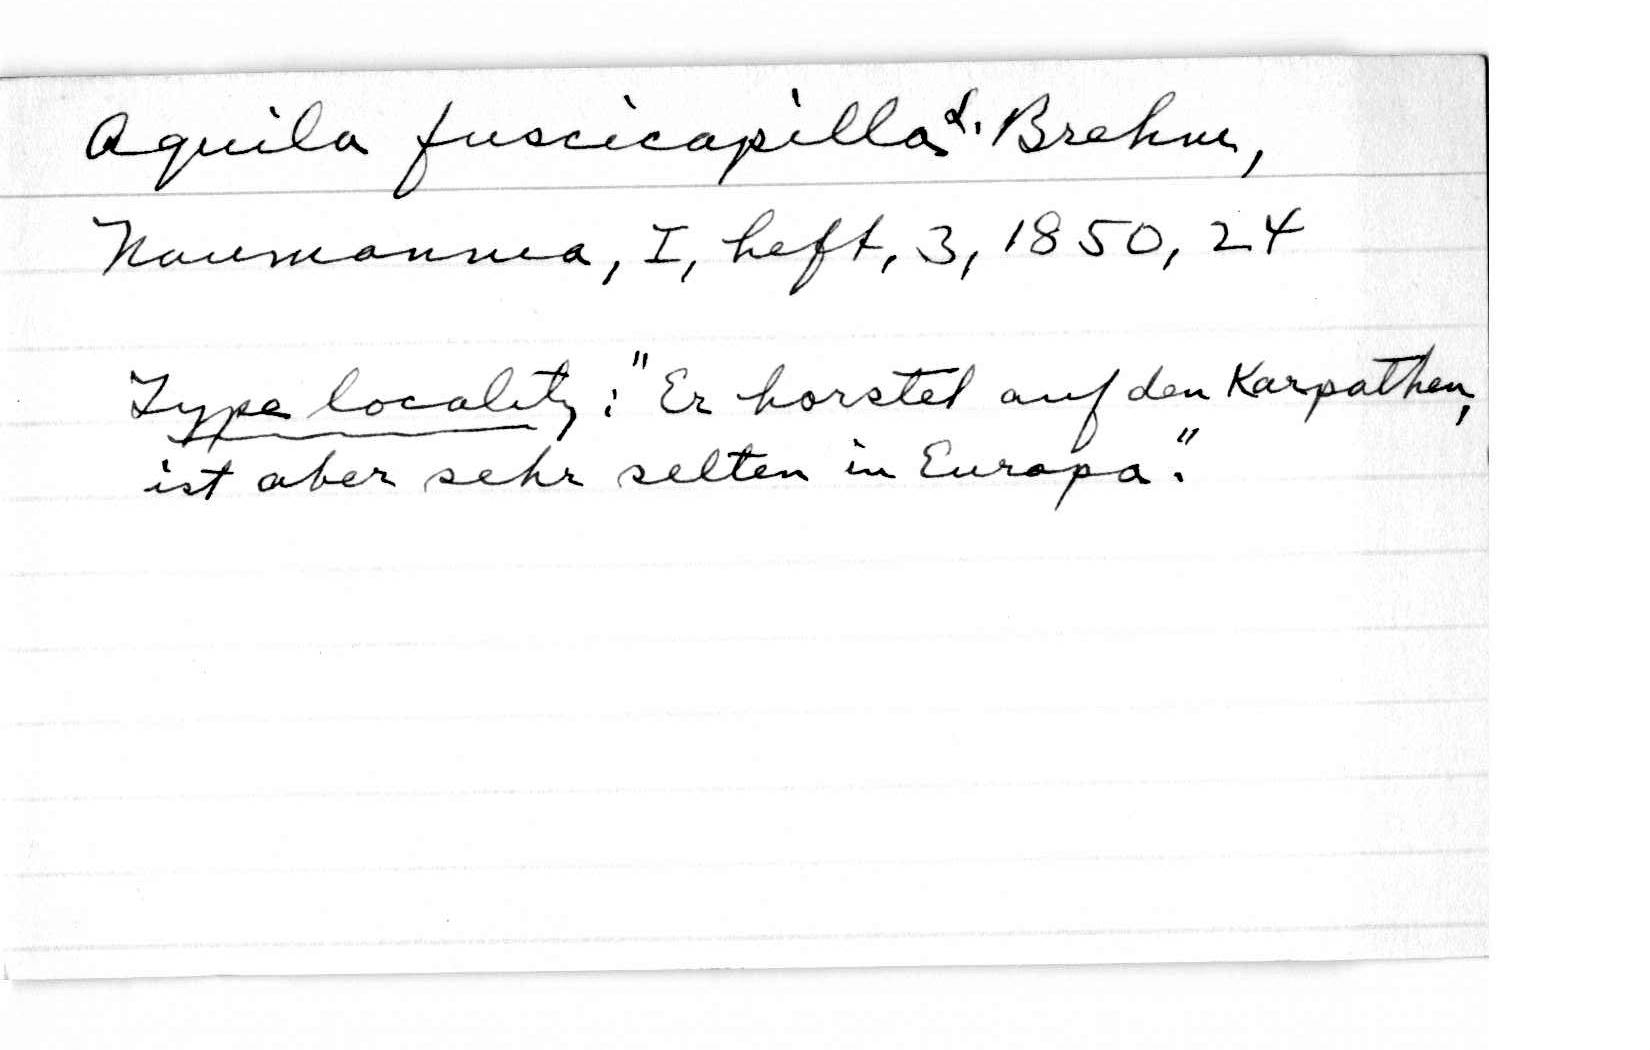 Aquila fuscicapilla L. Brehm,
Naumannia, I, heft, 3, 1850, 24
Type locality: "Er horstet auf den Karpathen,
ist aber sehr selten in Europa."